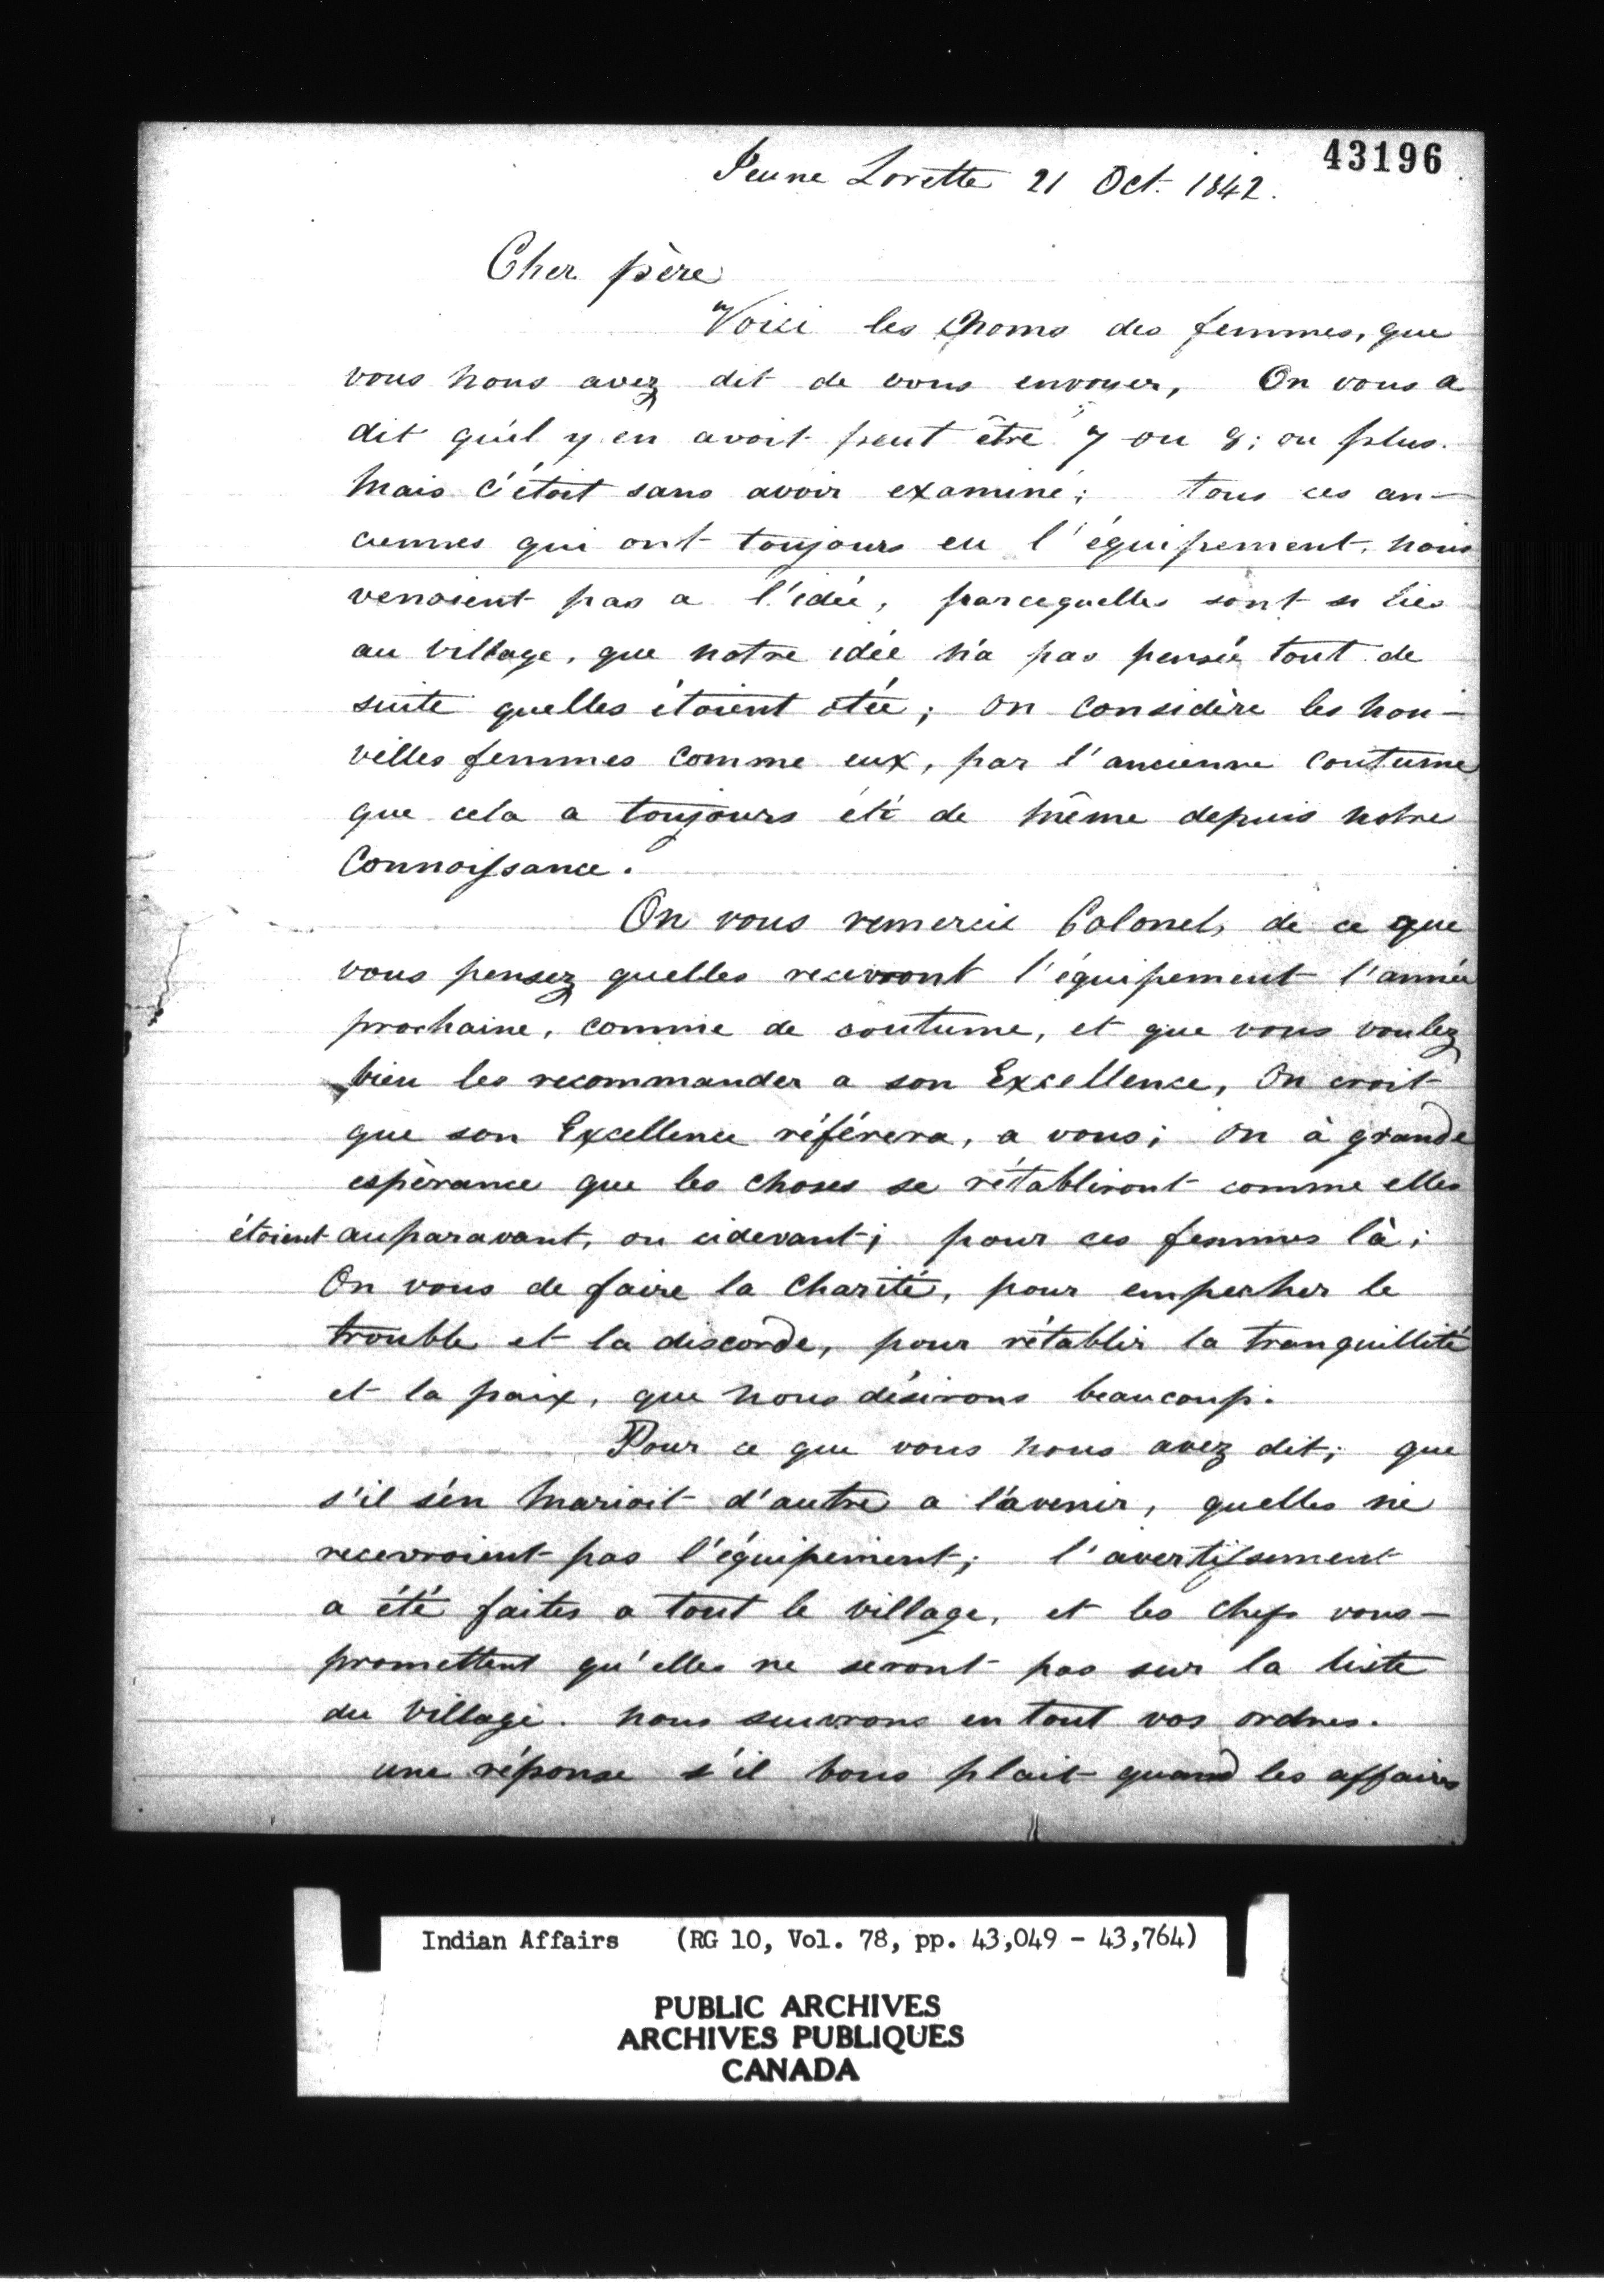 43196
Jeune Lorette 21 Oct. 1842.
Cher père
Voici les noms des femmes, que
vous nous avez dit de vous envoyer, On vous a
dit qu'il y en avoit peut être 7 ou 8; ou plus.
Mais c'étoit sans avoir examiné; tous ces an-
ciennes qui ont toujours eu l'équipement, nous
venoient pas a l'idée, parcequelles sont si liés
au village, que notre idée n'a pas pensée tout de
suite quelles étoient otée; on considère les nou-
velles femmes comme eux, par l'ancienne coutume
que cela a toujours été de même depuis notre
Connoissance.
On vous remercie Colonel, de ce que
vous pensez quelles recevront l'équipement l'année
prochaine, comme de coutume, et que vous voulez
bien les recommander a son Excellence, On croit
que son Excellence référera, a vous; on à grande
espèrance que les choses se rétabliront comme elles
étoient auparavant, ou cidevant; pour ces femmes là;
On vous de faire la Charité, pour empecher le
trouble et la discorde, pour rétablir la tranquillité
et la paix, que nous désirons beaucoup.
Pour ce que vous nous avez dit; que
s'il s'en marioit d'autre a l'avenir, quelles ne
recevroient pas l'équipement; l'avertissement
a été faites a tout le village, et les chefs vous-
promettent qu'elles ne seront pas sur la liste
du village. nous suivrons en tout vos ordres.
une réponse s'il vous plait quand les affaires
Indian Affairs (RG 10, Vol. 78, pp. 43,049 - 43,764)
PUBLIC ARCHIVES
ARCHIVES PUBLIQUES
CANADA